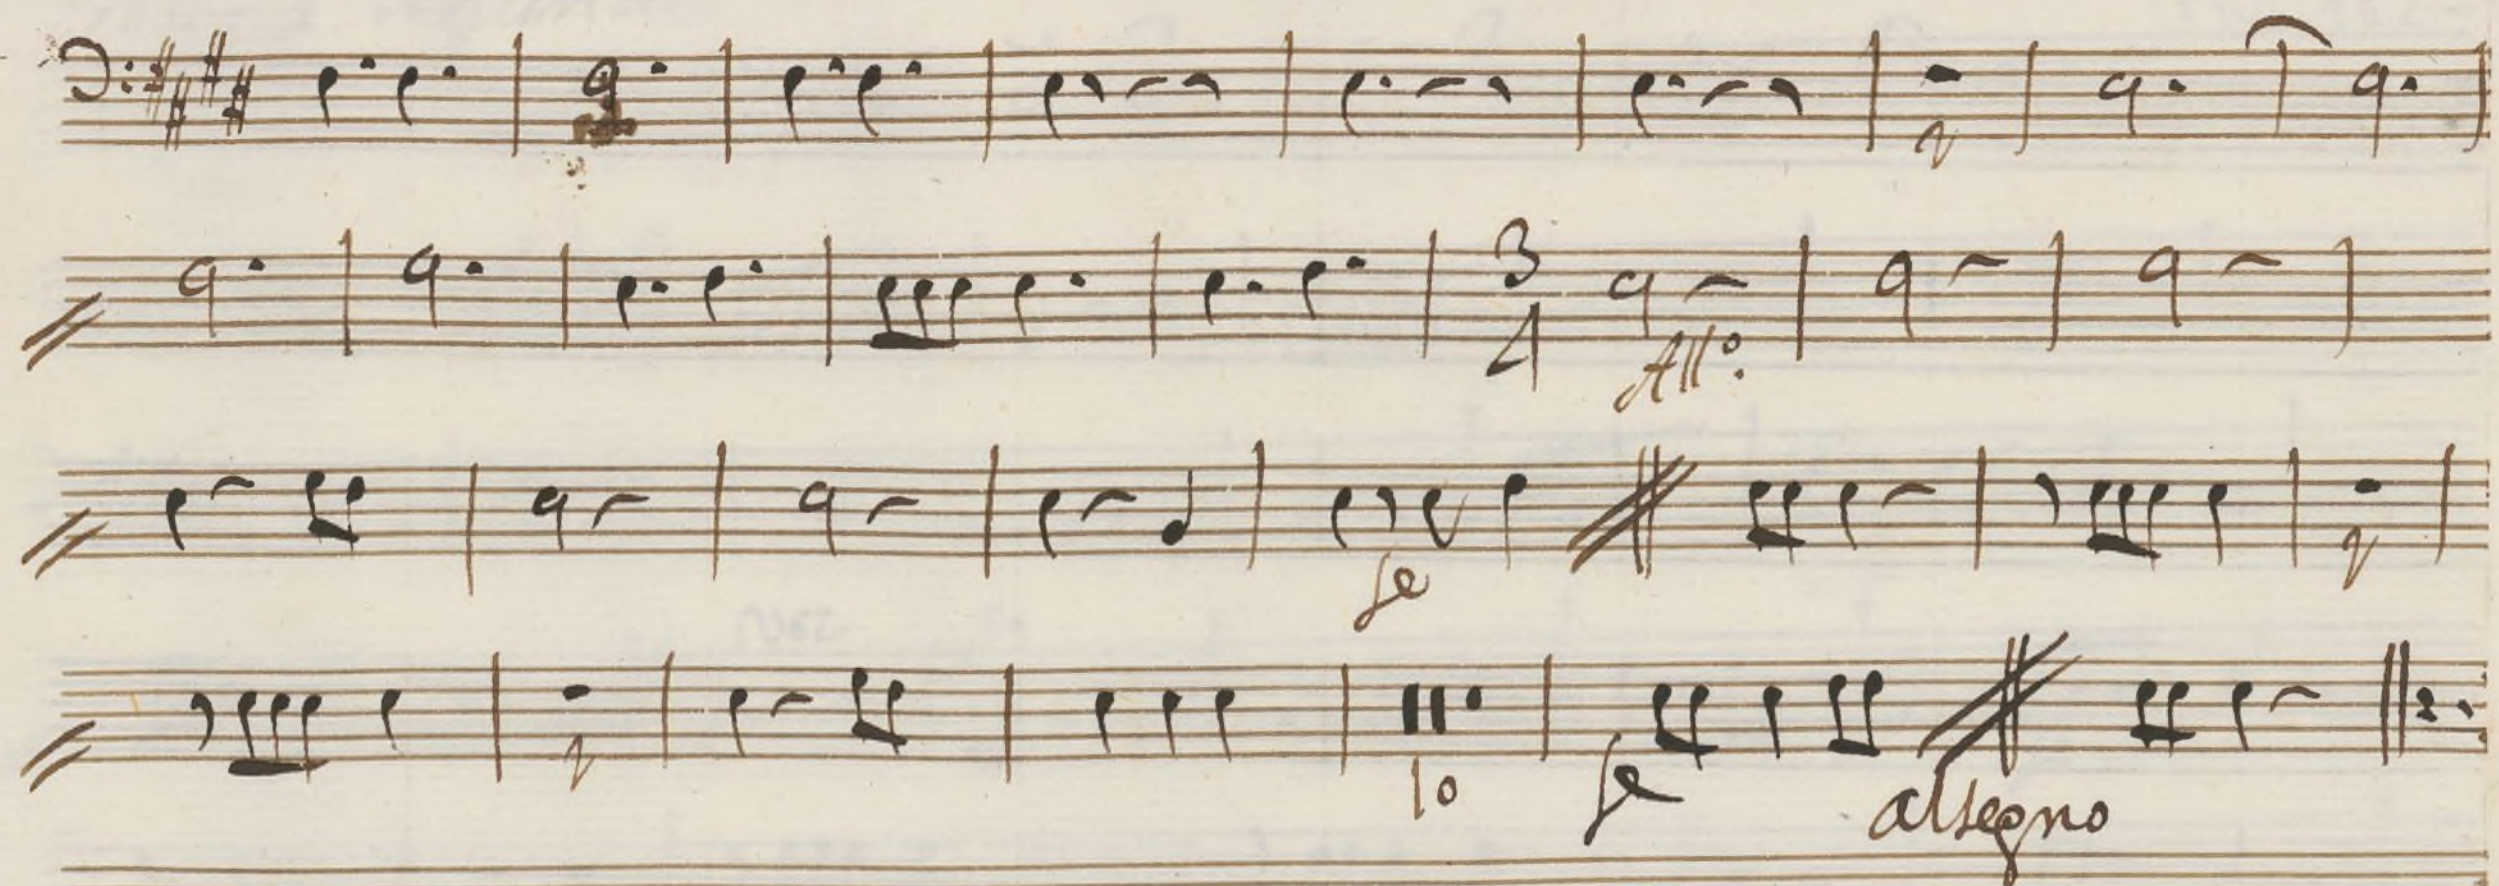 1
3
4
All:o
fe
1
1
10
fe
alsegno